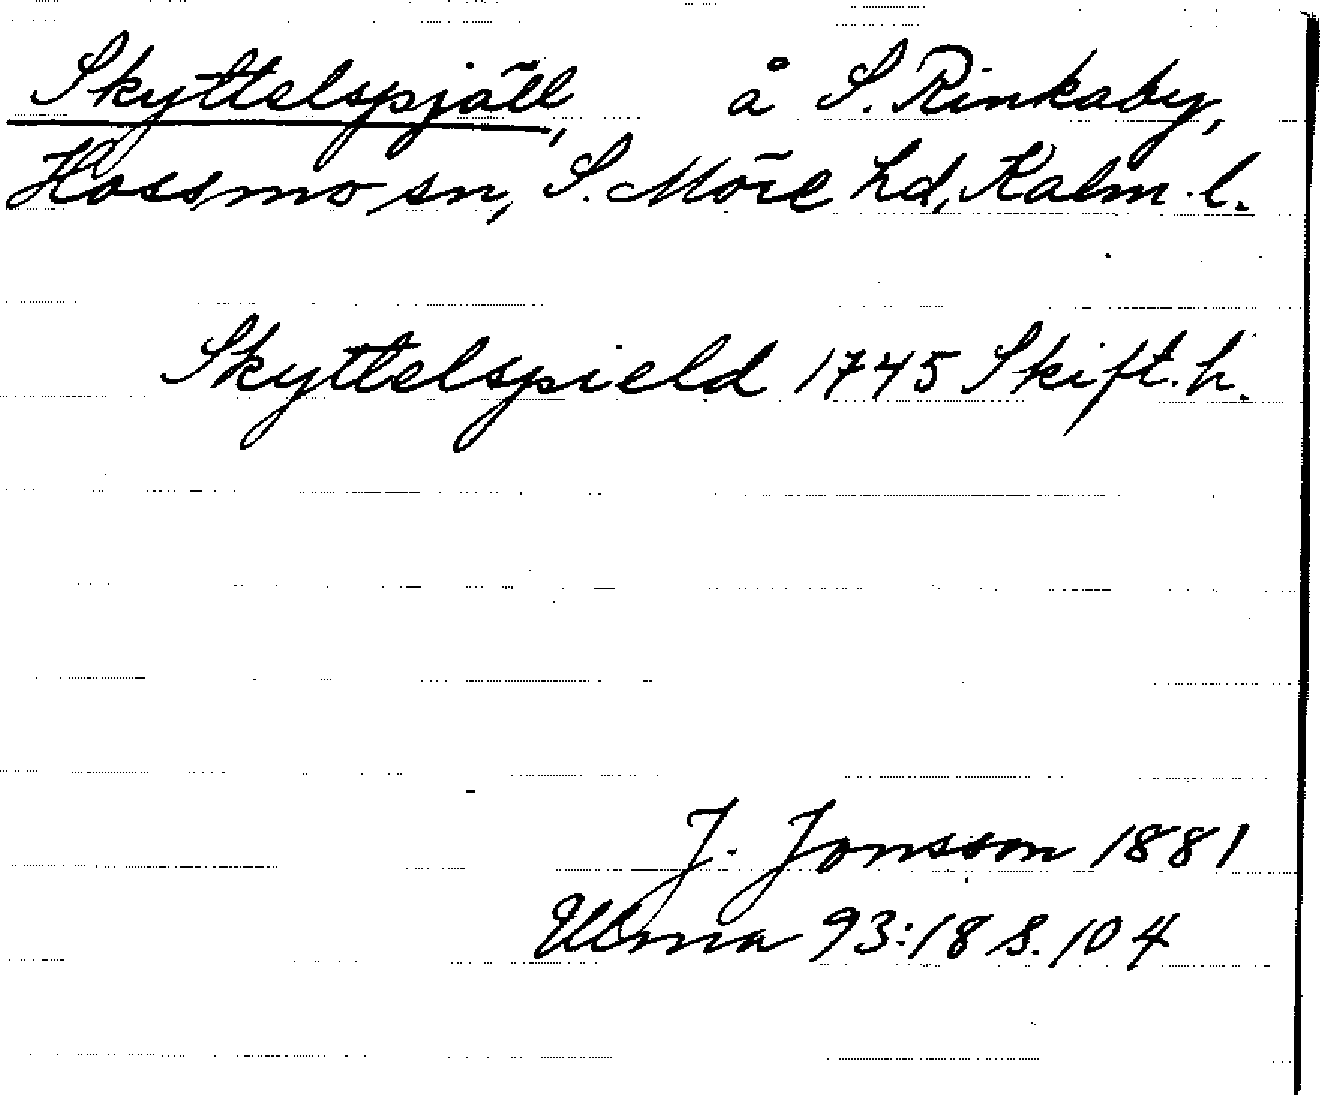 Skyttelspjäll, å S. Rinkaby,
Hossmo sn, S. Möre hd, Kalm. l.
Skyttelspield 1745 Skift. h.
J. Jonsson 1881
Ulma 93:18 s. 104